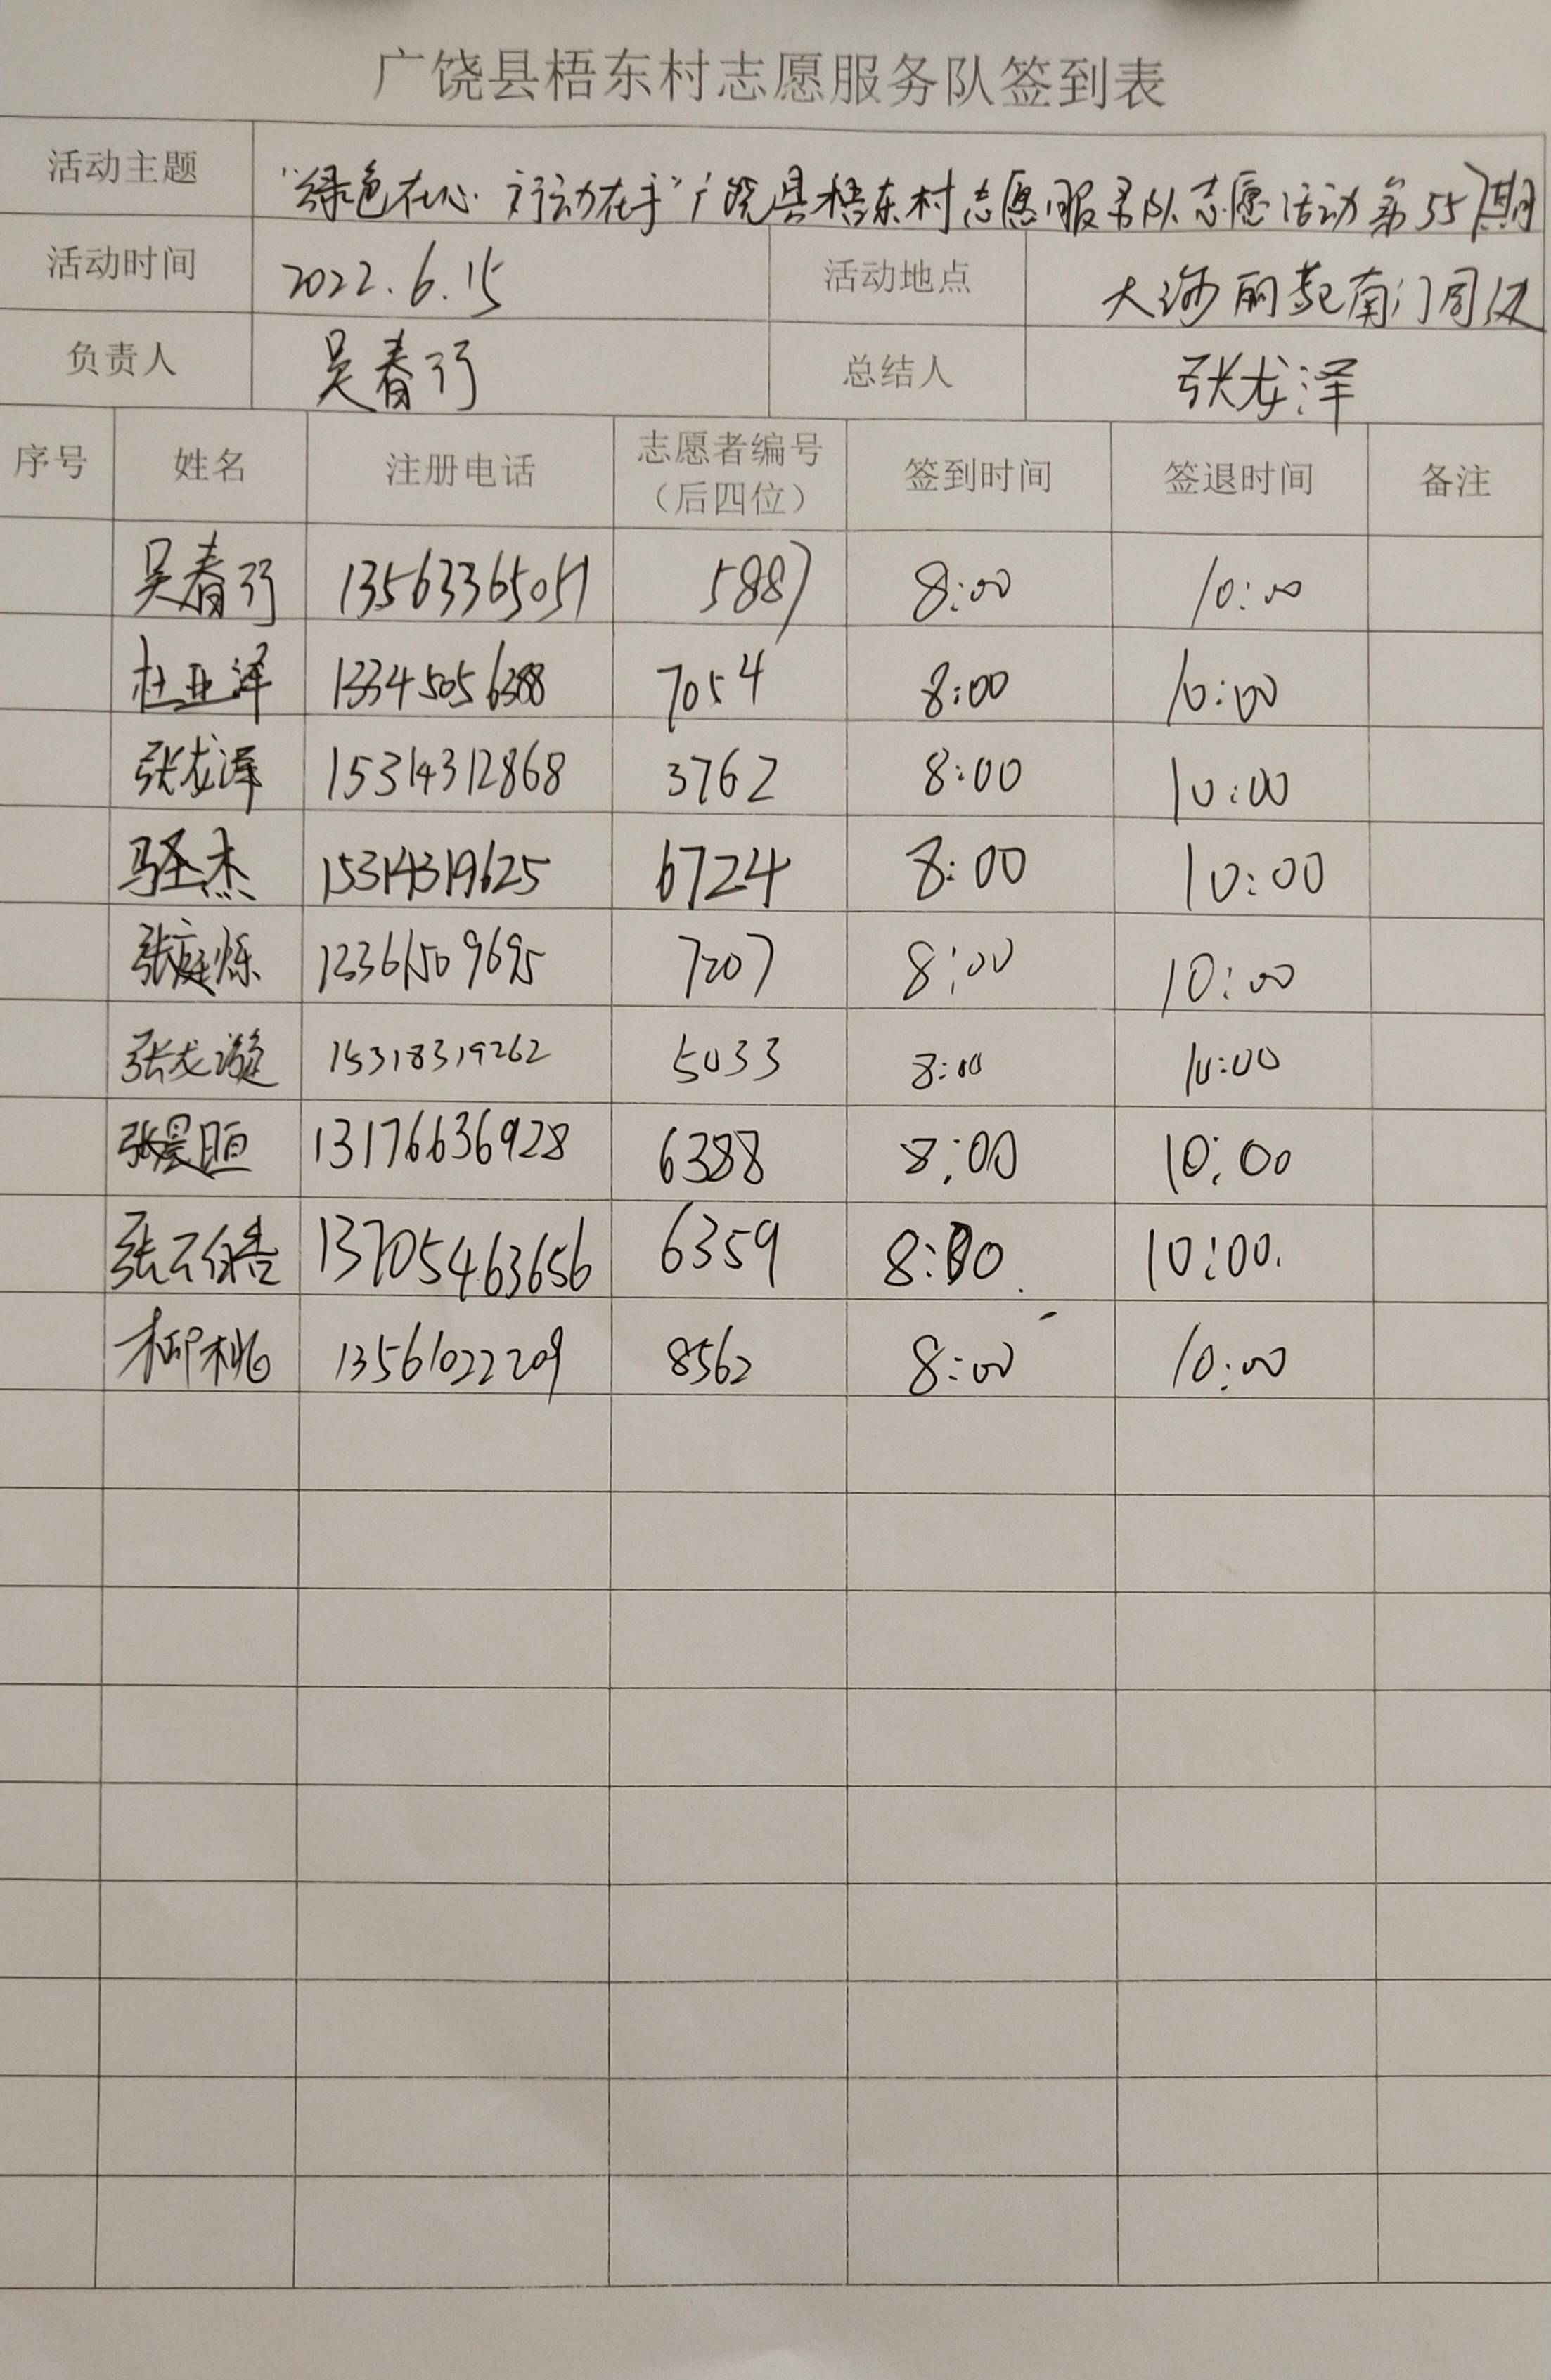 广饶县梧东村志愿服务队签到表
活动主题 “绿色在心 行动在手”广饶县梧东村志愿服务队志愿活动第557期
活动时间 2022.6.15 活动地点 大海丽苑南门周边
负责人 吴春巧 总结人 张龙泽
序号 姓名 注册电话 志愿者编号（后四位） 签到时间 签退时间 备注
吴春巧 13563365051 5887 8:00 10:00
杜亚泽 13345056388 7054 8:00 10:00
张龙泽 15314312868 3762 8:00 10:00
马圣杰 15314319625 6724 8:00 10:00
张庭烁 13361509695 7207 8:00 10:00
张龙 15318319262 5033 8:00 10:00
张晨晅 13176636928 6388 8:00 10:00
张云皓 13705463656 6359 8:00 10:00.
柳桃 13561022209 8562 8:00 10:00